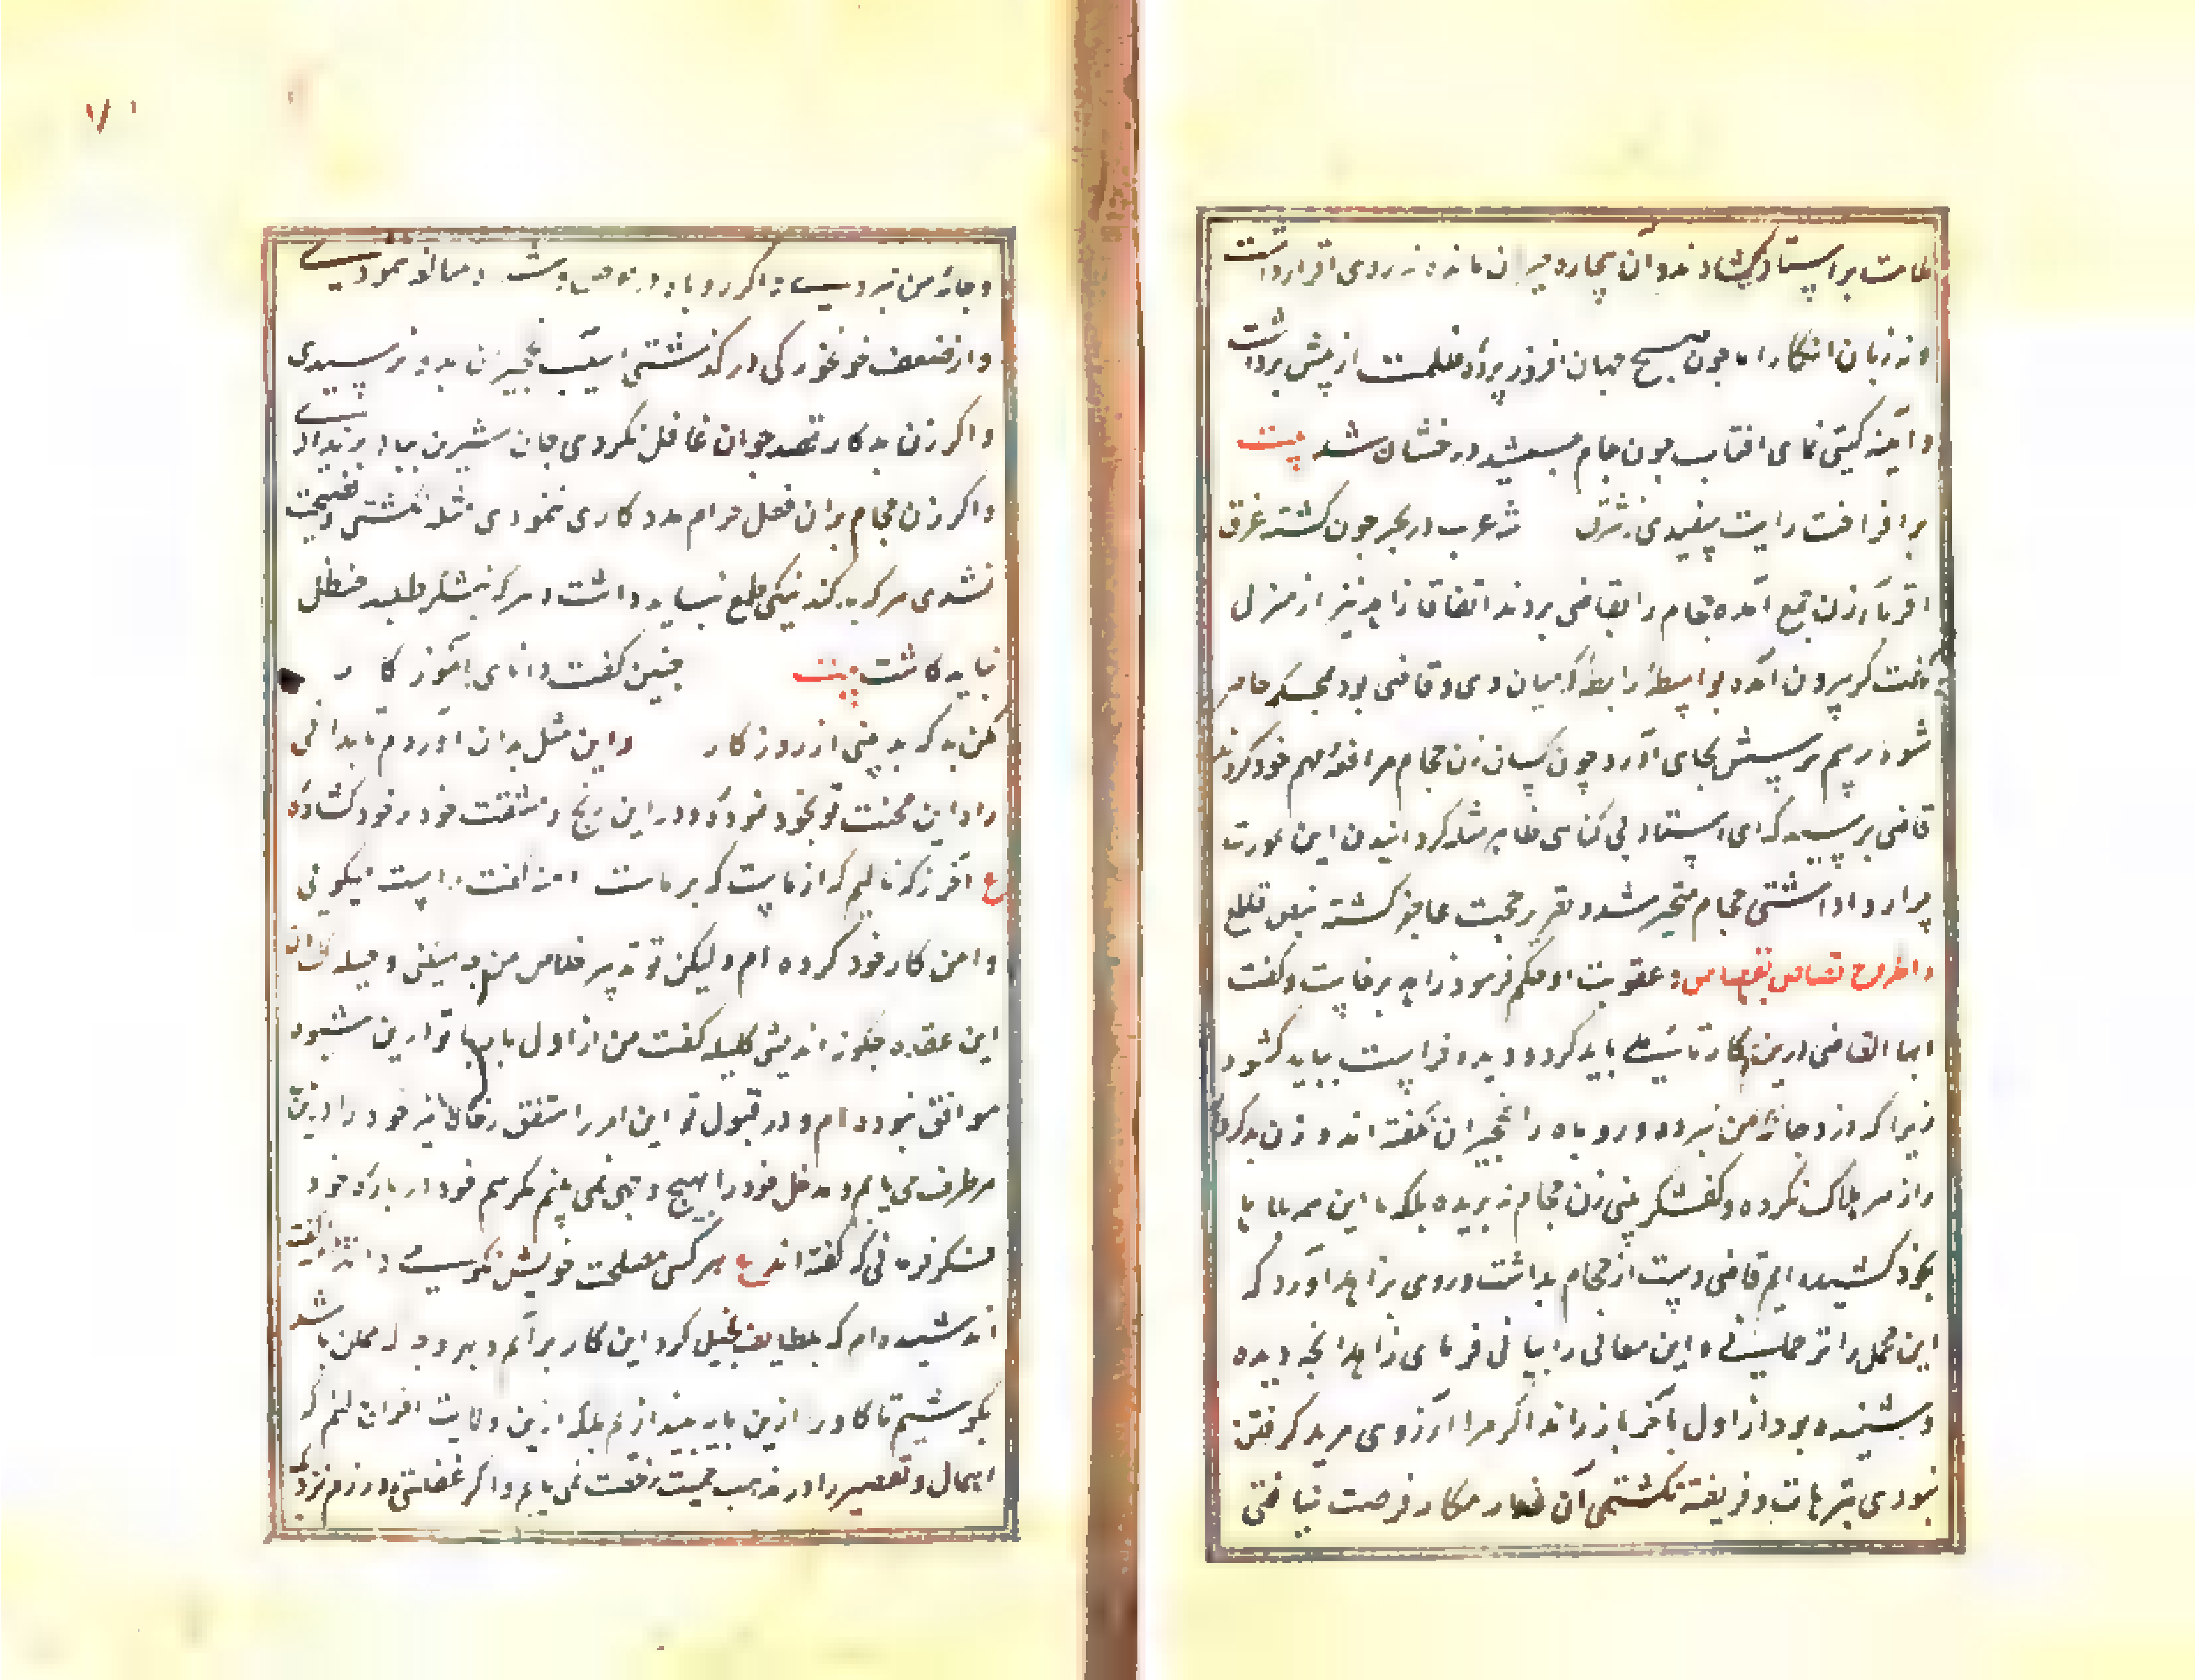 ملامت بر استاد بکشادند و آن بیچاره حیران مانده نه روی اقرار داشت
و نه زبان انکار اما چون صبح جهان افروز پرده ظلمت از پیش برداشت
و آینه کیتی نمای افتاب چون جام جمشید درخشان شد بیت
بر افراخت رایت سپیدی ز شرق شه غرب در بحر خون کشته غرق
اقربای زن جمع آمده حجام را بقاضی بردند اتفاقا زاهد نیز از منزل
کفشکر بیرون آمده بواسطه رابطه که میان وی و قاضی بود بمحکمه حاضر
شد و رسم پرسش بجای آورد چون کسان زن حجام مرافعه مهم خود کردند
قاضی پرسید که ای استاد بی کناهی ظاهر مثله کردانیدن این عورت
چرا روا داشتی حجام متحیر شد و تقریر حجت عاجز کشته بنص قاطع
و الجروح قصاص بقصاص و عقوبت او حکم فرمود زاهد برخاست و کفت
ایها القاضی درین کار تاملی باید کرد و دیده فراست بباید کشود
زیرا که دزد جامه من نبرده و روباه را نخجیران نکشته اند و زن بدکاره
را زهر هلاک نکرده و کفشکر بینی زن حجام نبریده بلکه ما این همه بلا با
بخود کشیده ایم قاضی دست از حجام بداشت و روی بزاهد آورد که
این مجمل را ترجمانی و این معانی را بیانی فرمای زاهد انچه دیده
و شنیده بود از اول بآخر باز راند اکر مرا آرزوی مرید کرفتن
نبودی و بترهات دزد فریفته نکشتمی آن غدار مکار فرصت نیافتی
و جامه من نبردی و اکر روباه در حرص و شره مبالغه ننمودی
و از ضعف خونخوارکی در کذشتی اسیب نخجیران بدو نرسیدی
و اکر زن بدکار قصد جوان غافل نکردی جان شیرین بباد برندادی
و اکر زن حجام بران فعل حرام مددکاری ننمودی مثله نکشتی و فضیحت
نشدی هر که بد کند نیکی طمع نباید داشت و هر که نیشکر طلبد حنظل
نباید کاشت بیت چنین کفت دانای آموزکار
مکن بد که بد بینی از روزکار و این مثل بدان آوردم تا بدانی
راه این محنت تو بخود نموده و در این رنج و مشقت خود بر خود کشاده
ع آخر ز که نالیم که از ماست که بر ماست دمنه کفت راست میکویی
و این کار خود کرده ام ولیکن تو تدبیر خلاص من چه میکنی و حیله کشادن
این عقده چکونه اندیشی کلیله کفت من از اول با تو درین شیوه
موافق نبوده ام و در قبول تو این امر را متفق نه حالا نیز خود را ازین
برطرف می یابم و مدخل خود را هیچ وجهی نمی بینم مکر هم خود در باره خود
فکر فرمایی که کفته اند ع هر کسی مصلحت خویش نکو میداند دمنه کفت
اندیشیده ام که بلطایف الحیل کرد این کار برآیم و بهر وجه که ممکن باشد
بکوشم تا کاو را ازین پایه بیندازم بلکه ازین ولایت اخراج کنم که
اهمال و تقصیر را در مذهب حمیت رخصت نمی یابم و اکر غفلتی ورزم نزدیک